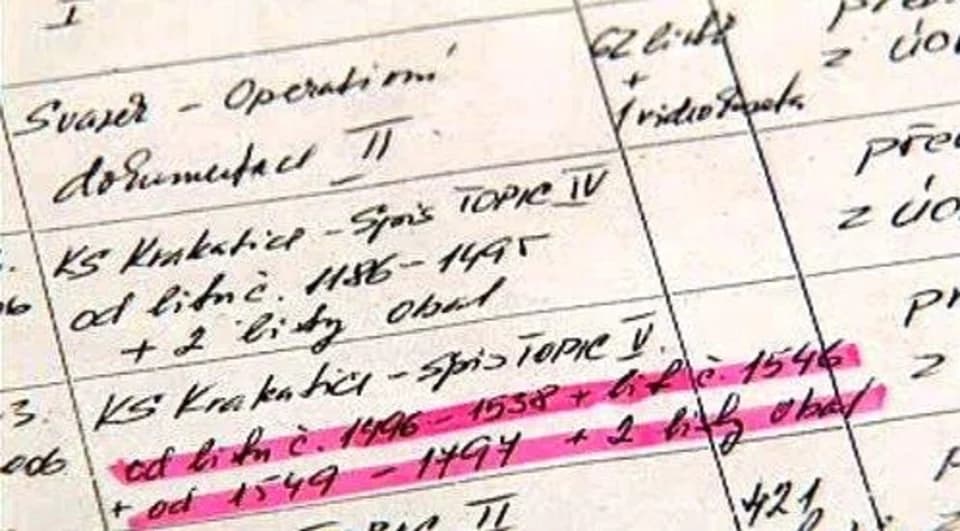 I
Svazek - Operativní
dokumentace II
62 listů
+
1 videokazeta
z úo
KS Krakatice - Spis TOPIC IV
od listu č. 1186 - 1495
+ 2 listy obal
z úo
3. KS Krakatice - Spis TOPIC V.
006 od listu č. 1496 - 1538 + list č. 1546
+ od 1549 - 1797 + 2 listy obal
z
II
421